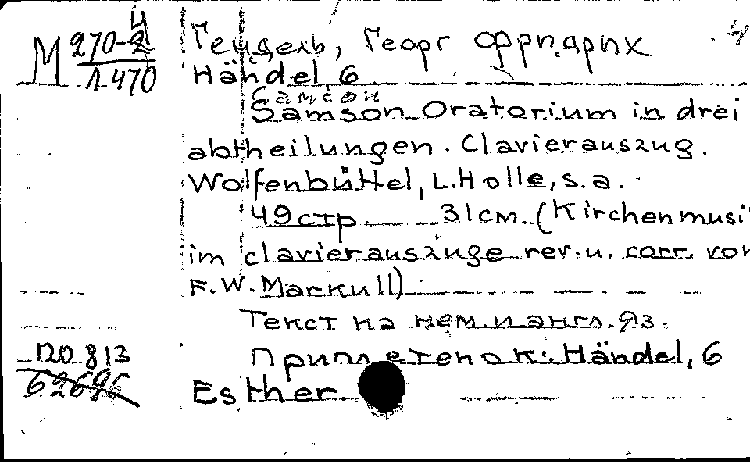 М 270-2 И
Л.470
Гендель, Георг Фридрих
Händel G
Самсон
Samson Oratorium in drei
abtheilungen. Clavierauszug.
Wolfenbüttel, L. Holle, s.a.
49 стр 31 см. (Kirchenmusi
im clavierauszuge rev. u. corr. von
F. W. Markull)
Текст на нем. и англ. яз.
По 813
Приплетенок: Händel, G
62696
Esther